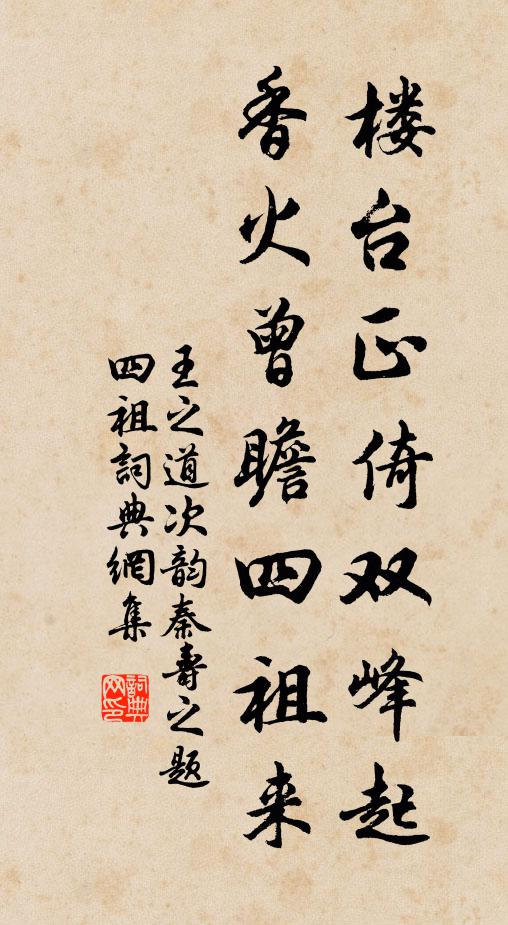 楼台正倚双峰起
香火曾瞻四祖来
王之道次韵秦寿之题
四祖詞典網集
詞典网印